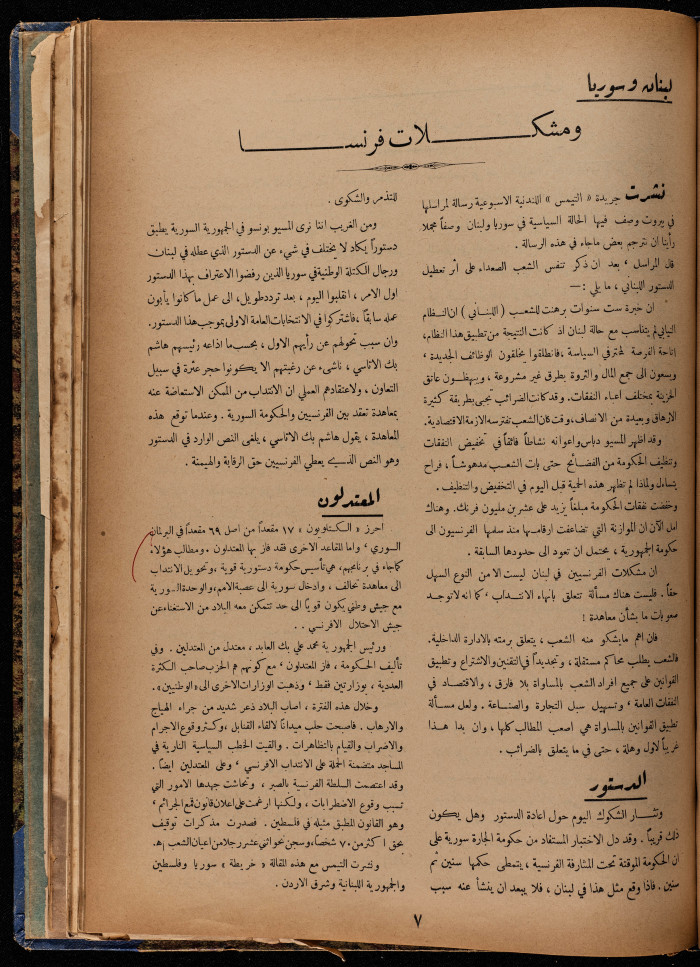 لبنان وسوريا
ومشكلات فرنسا
نشرت جريدة « التيمس » اللندنية الاسبوعية رسالة لمراسلها
في بيروت وصف فيها الحالة السياسية في سوريا ولبنان وصفاً مجملا
رأينا ان نترجم بعض ماجاء في هذه الرسالة .
قال المراسل ، بعد ان ذكر تنفس الشعب الصعداء على أثر تعطيل
الدستور اللبناني ، ما يلي : —
ان خبرة ست سنوات برهنت للشعب ( اللبناني ) ان النظام
النيابي لم يتناسب مع حالة لبنان اذ كانت النتيجة من تطبيق هذا النظام،
اتاحة الفرصة لمحترفي السياسة ، فانطلقوا يخلقون الوظائف الجديدة ،
ويسعون الى جمع المال والثروة بطرق غير مشروعة ، ويبهظون عاتق
الخزينة بمختلف اعباء النفقات . وقد كانت الضرائب تجبى بطريقة كثيرة
الارهاق وبعيدة من الانصاف، وقت كان الشعب تفترسه الازمة الاقتصادية.
وقد اظهر المسيو دباس واعوانه نشاطاً فائقاً في تخفيض النفقات
وتنظيف الحكومة من الفضائح حتى بات الشعب مدهوشاً ، فراح
يتساءل ولماذا لم تظهر هذه الحمية قبل اليوم في التخفيض والتنظيف .
وخفضت نفقات الحكومة مبلغاً يزيد على عشرين مليون فرنك. وهناك
امل الآن ان الموازنة التي تضاعفت ارقامها منذ سلمها الفرنسيون الى
حكومة الجمهورية ، يحتمل ان تعود الى حدودها السابقة .
ان مشكلات الفرنسيين في لبنان ليست الا من النوع السهل
حقاً . فليست هناك مسألة تتعلق بانهاء الانتداب ، كما انه لا توجد
صعوبات ما بشأن معاهدة !
فان اهم مايشكو منه الشعب ، يتعلق برمته بالادارة الداخلية.
فالشعب يطلب محاكم مستقلة ، وتجديداً في التقنين والاشتراع وتطبيق
القوانين على جميع افراد الشعب بالمساواة بلا فارق ، والاقتصاد في
النفقات العامة ، وتسهيل سبل التجارة والصناعة . ولعل مسألة
تطبيق القوانين بالمساواة هي اصعب المطالب كلها ، وان بدا هذا
غريباً لاول وهلة ، حتى في ما يتعلق بالضرائب .
الدستور
وتثار الشكوك اليوم حول اعادة الدستور وهل يكون
ذلك قريباً . وقد دل الاختبار المستفاد من حكومة الجارة سورية على
ان الحكومة الموقتة تحت المشارفة الفرنسية ، يتمطى حكمها سنين ثم
سنين . فاذا وقع مثل هذا في لبنان ، فلا يبعد ان ينشأ عنه سبب
للتذمر والشكوى .
ومن الغريب اننا نرى المسيو بونسو في الجمهورية السورية يطبق
دستوراً يكاد لا يختلف في شيء عن الدستور الذي عطله في لبنان
ورجال الكتلة الوطنية في سوريا الذين رفضوا الاعتراف بهذا الدستور
اول الامر ، انقلبوا اليوم ، بعد تردد طويل، الى عمل ما كانوا يأبون
عمله سابقاً ، فاشتركوا في الانتخابات العامة الاولى بموجب هذا الدستور.
وان سبب تحولهم عن رأيهم الاول ، بحسب ما اذاعه رئيسهم هاشم
بك الاتاسي ، ناشىء عن رغبتهم الا يكونوا حجر عثرة في سبيل
التعاون ، ولاعتقادهم العملي ان الانتداب من الممكن الاستعاضة عنه
بمعاهدة تعقد بين الفرنسيين والحكومة السورية . وعندما توقع هذه
المعاهدة ، يقول هاشم بك الاتاسي ، يلغى النص الوارد في الدستور
وهو النص الذي يعطي الفرنسيين حق الرقابة والهيمنة .
المعتدلون
احرز « الكتلويون » ١٧ مقعداً من اصل ٦٩ مقعداً في البرلمان
السوري ، واما المقاعد الاخرى فقد فاز بها المعتدلون ، ومطالب هؤلاء
كما جاء في برنامجهم، هي تأسيس حكومة دستورية قوية ، وتحويل الانتداب
الى معاهدة تحالف ، وادخال سورية الى عصبة الامم، والوحدة السورية
مع جيش وطني يكون قوياً الى حد تتمكن معه البلاد من الاستغناء عن
جيش الاحتلال الافرنسي . .
ورئيس الجمهورية محمد علي بك العابد ، معتدل من المعتدلين . وفي
تأليف الحكومة ، فاز المعتدلون ، مع كونهم هم الحزب صاحب الكثرة
العددية ، بوزارتين فقط ، وذهبت الوزارات الاخرى الى « الوطنيين».
وخلال هذه الفترة ، اصاب البلاد ذعر شديد من جراء الهياج
والارهاب . فاصبحت حلب ميداناً لالقاء القنابل ، وكثر وقوع الاجرام
والاضراب والقيام بالتظاهرات . والقيت الخطب السياسية النارية في
المساجد متضمنة الحملة على الانتداب الافرنسي ، وعلى المعتدلين ايضاً .
وقد اعتصمت السلطة الفرنسية بالصبر ، وتحاشت جهدها الامور التي
تسبب وقوع الاضطرابات ، ولكنها ارغمت على اعلان قانون قمع الجرائم ،
وهو القانون المطبق مثيله في فلسطين . فصدرت مذكرات توقيف
بحق اكثر من ٧٠ شخصاً، وسجن نحو اثني عشر رجلا من اعيان الشعب اه.
ونشرت التيمس مع هذه المقالة « خريطة » سوريا وفلسطين
والجمهورية اللبنانية وشرق الاردن .
٧